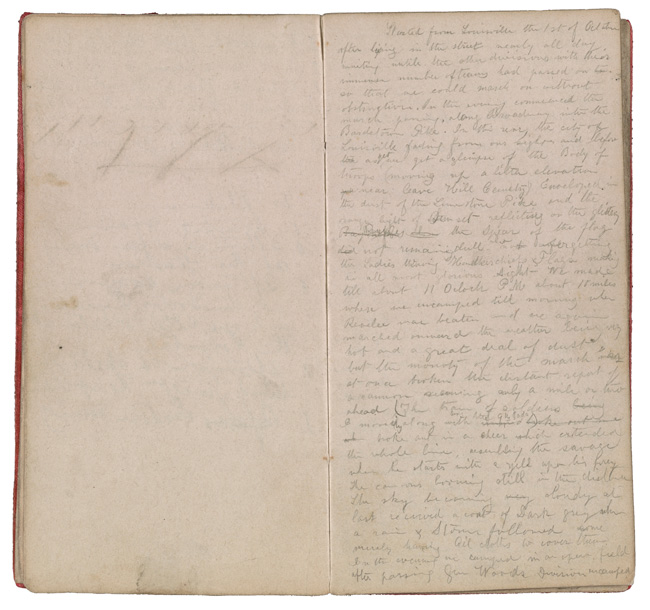 Started from Louisville the 1st of Oct
after lying in the street nearly all day
waiting until the other divisions with their
number of teams had passed on
so that we could march on without
obstruction. In the evening commenced the
march passing along Broadway into the
Bardstown Pike. In the rear, the city of
Louisville fading from our sight and before
us get a glimpse of the Body of
troops moving up a little elevation
near Cave Hill Cemetry Enveloped in
the dust of the Limestone Pike and the
rays of Sunset reflecting on the
the Spear of the flag
did not remain dull not forgetting
the Ladies throwing Handkerchiefs & Flags making
in all most glorious sight. We marched
till about 11 Oclock P.M. about 15 miles
where we encamped till morning when
Revelee was beaten and we again
marched onward the weather being very
hot and a great deal of dust
but the monoty of the march
at once broken the distant report of
a cannon seeming only a mile or two
ahead (The of soldiers
I moved along with
broke out in a cheer which extended
the whole line, resembling the savage
when he starts with a yell upon his prey
the cannons booming still in the distance
The sky becoming cloudy at
last received a coat of Dark grey when
a rain & Storm followed some
merely having Oil cloths to cover them
In the evening we camped in an open field
after passing Gen Woods Division encamped